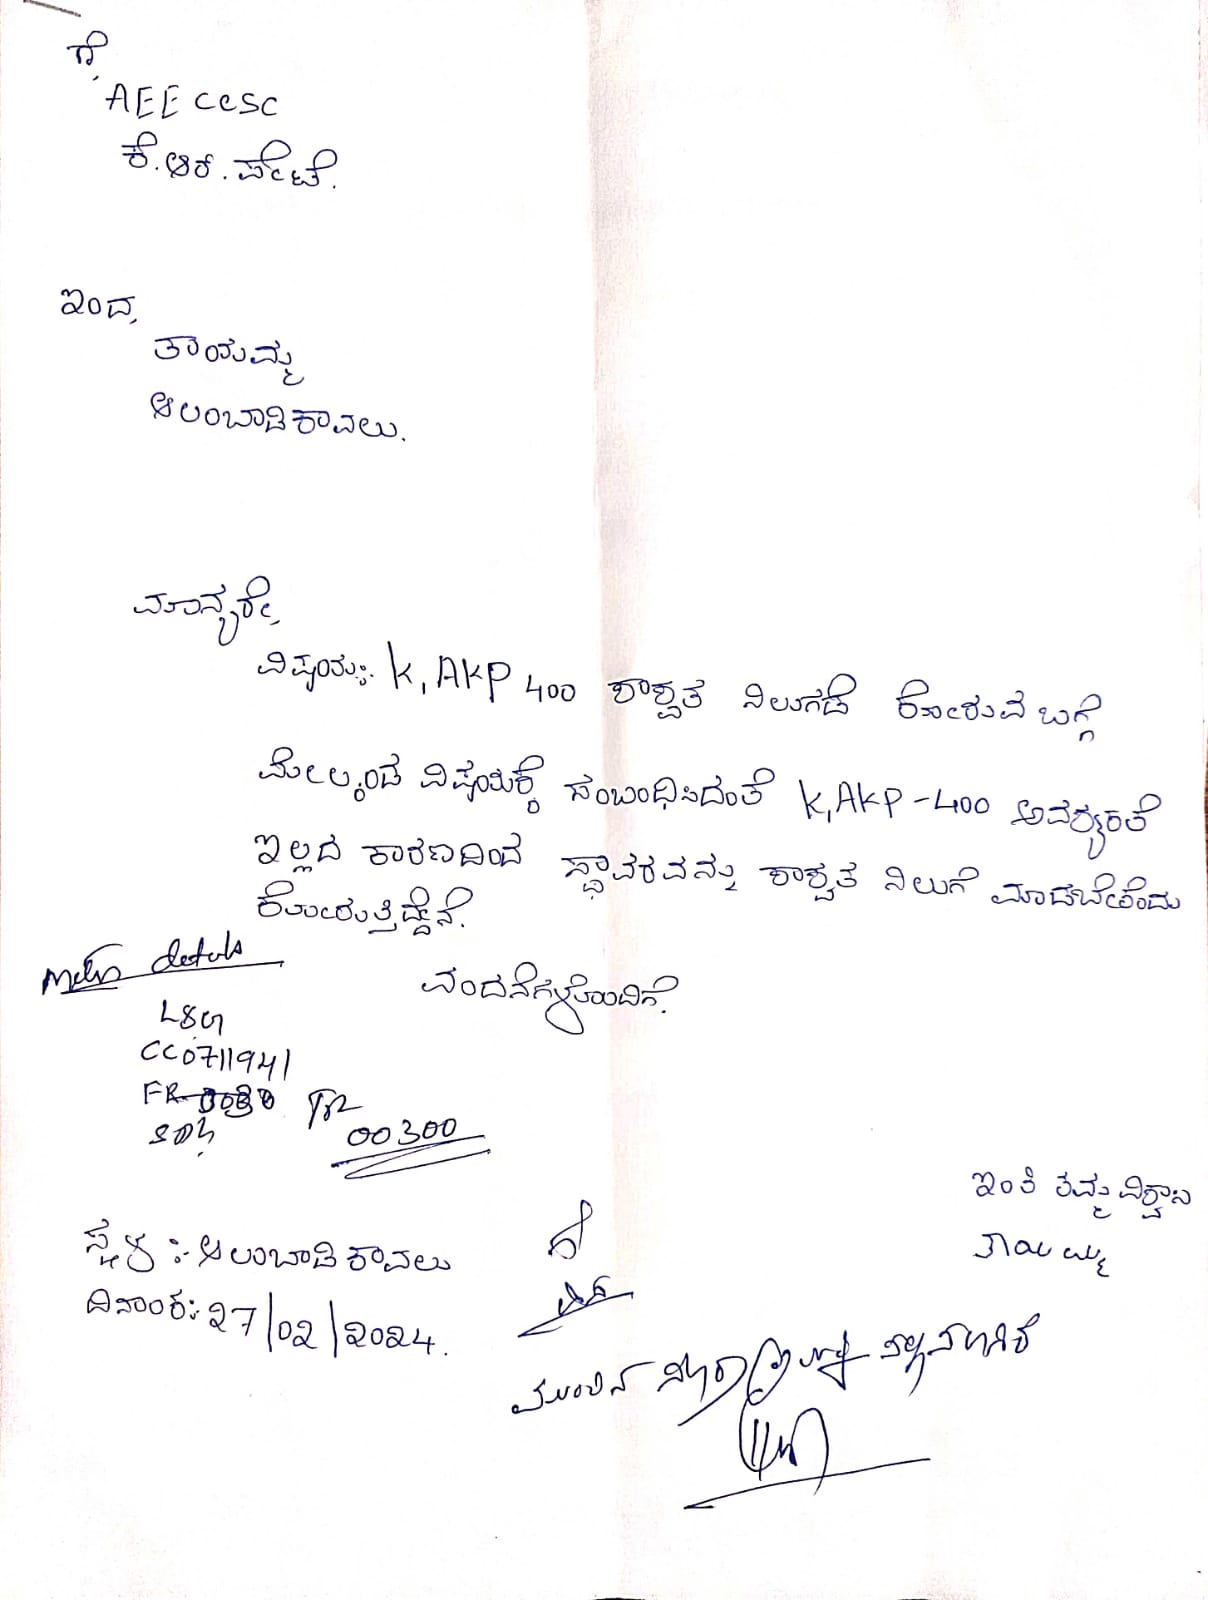 ಗೆ,
AEE CESC
ಕೆ.ಆರ್.ಪೇಟೆ.
ಇಂದ,
ತಾಯಮ್ಮ
ಆಲಂಬಾಡಿಕಾವಲು.
ಮಾನ್ಯರೇ,
ವಿಷಯ:- K, AKP 400 ಶಾಶ್ವತ ನಿಲುಗಡೆ ಕೋರುವ ಬಗ್ಗೆ
ಮೇಲ್ಕಂಡ ವಿಷಯಕ್ಕೆ ಸಂಬಂಧಿಸಿದಂತೆ K, AKP-400 ಅವಶ್ಯಕತೆ
ಇಲ್ಲದ ಕಾರಣದಿಂದ ಸ್ಥಾವರವನ್ನು ಶಾಶ್ವತ ನಿಲುಗೆ ಮಾಡಬೇಕೆಂದು
ಕೋರುತ್ತಿದ್ದೇನೆ.
ವಂದನೆಗಳೊಂದಿಗೆ.
L&G
CC0711941
FR
00300
ಇಂತಿ ತಮ್ಮ ವಿಶ್ವಾಸಿ
ತಾಯಮ್ಮ
ಸ್ಥಳ :- ಆಲಂಬಾಡಿ ಕಾವಲು
ದಿನಾಂಕ:- 27/02/2024.
ಮುಂದಿನ